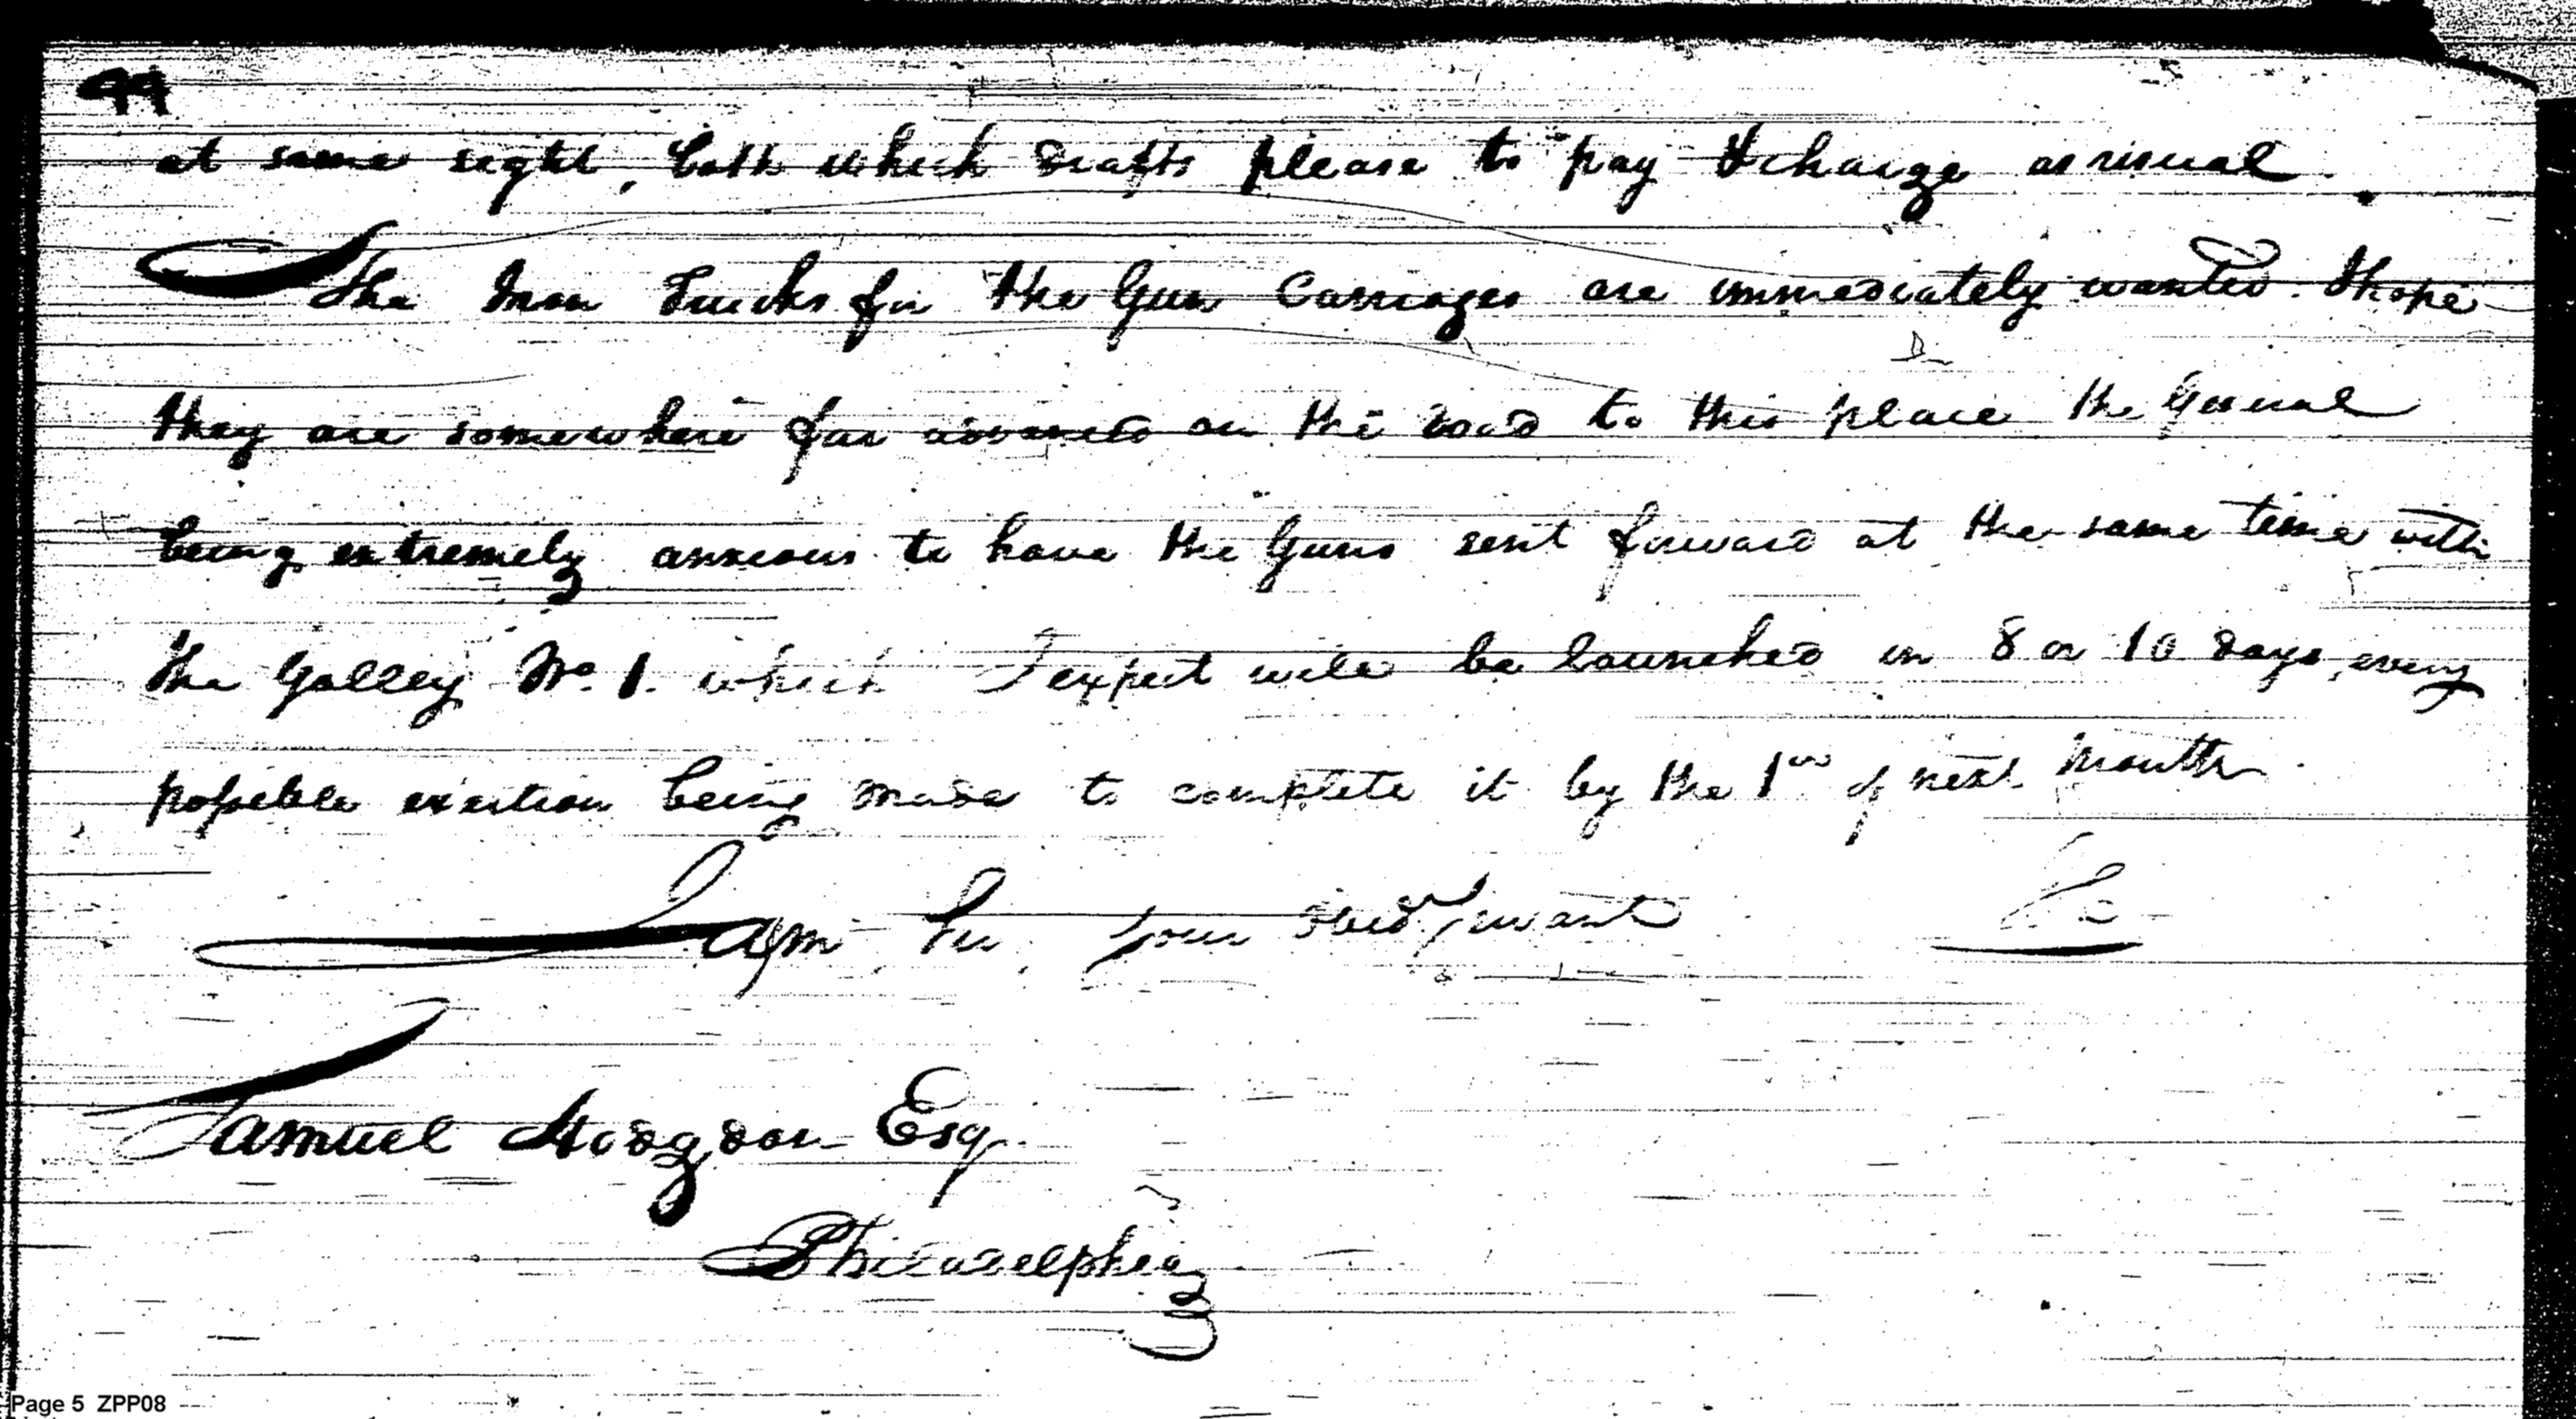 99
at same sight, both which drafts please to pay & charge as usual.
The Iron Trucks for the Gun Carriages are immediately wanted. I hope
they are somewhere far advanced on the road to this place the General
being extremely anxious to have the Guns sent forward at the same time with
the Galley No. 1. which I expect will be launched in 8 or 10 days, every
possible exertion being made to complete it by the 1st of next Month.
I am Sir your obed Servant
Samuel Hodgdon Esq.
Philadelphia
Page 5 ZPP08